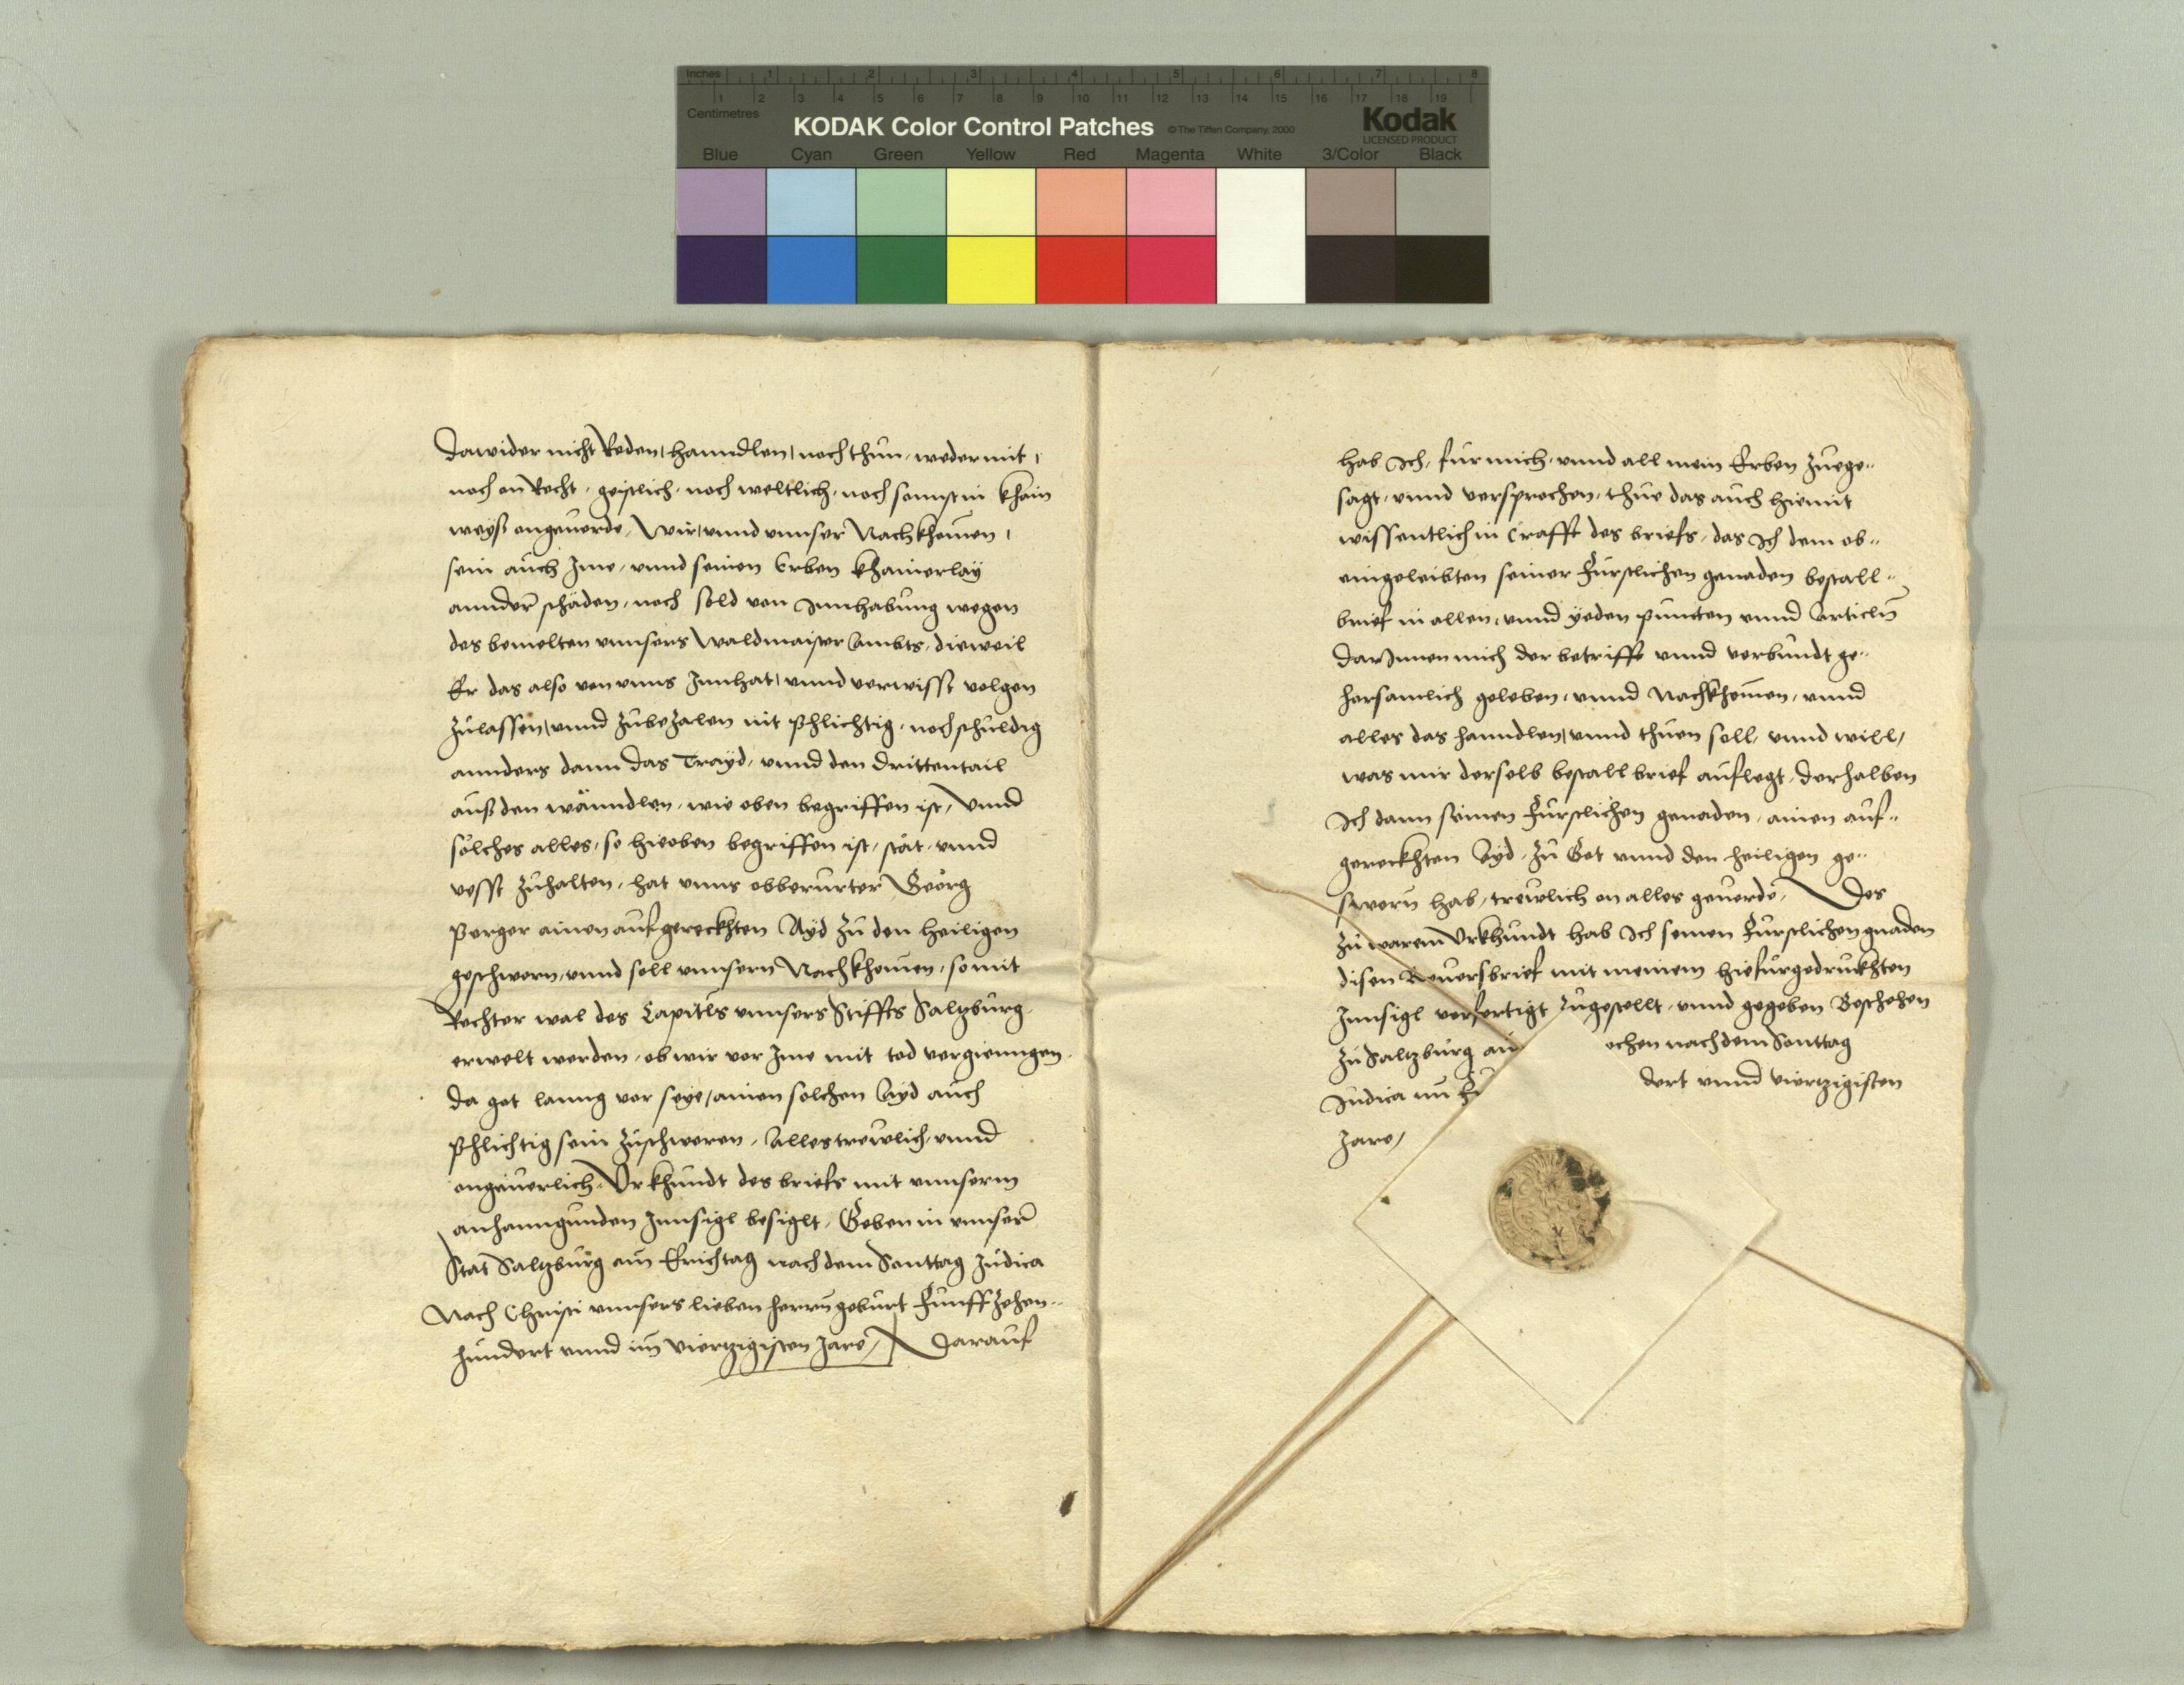 Inches 1 2 3 4 5 6 7 8
1 2 3 4 5 6 7 8 9 10 11 12 13 14 15 16 17 18 19
Centimetres
KODAK Color Control Patches © The Tiffen Company, 2000 Kodak
LICENSED PRODUCT
Blue Cyan Green Yellow Red Magenta White 3/Color Black
Dawider nicht Reden, hanndlen, noch thun, weder mit,
noch on Recht, geistlich, noch weltlich, noch sonnst in khain
weyß ongeuerde, Wir, vnnd vnnser Nachkhomen,
sein auch Ime, vnnd seinen Erben khainerlay
annder schäden, noch sold von Innhabung wegen
des bemelten vnnsers Waldmaister Ambts, dieweil
Er das also von vnns Innhat, vnnd verwisst volgen
zulassen, vnnd zubezalen nit phlichtig, noch schuldig
annders dann das Trayd, vnnd den drittentail
auß den wänndlen, wie oben begriffen ist, Vnnd
solches alles, so hieoben begriffen ist, stät, vnnd
vesst zuhalten, hat vnns obberurter Georg
Perger ainen aufgereckhten Ayd zu den heiligen
geschworn, vnnd soll vnnsern Nachkhomen, so mit
Rechter wal des Capitls vnnsers Stiffts Saltzburg
erwelt werden, ob wir vor Ime mit tod vergienngen
da got lanng vor seye, ainen solchen Ayd auch
phlichtig sein zuschweren, Alles trewlich, vnnd
ongeuerlich, Vrkhundt des briefs mit vnnserm
anhanngunden Innsigl besiglt, Geben in vnnser
Stat Saltzburg am Erichtag nach dem Sonttag Judica
Nach Christi vnnsers lieben herrn geburt Funffzehen-
hundert vnnd im viertzigisten Jare, Darauf
hab Ich, fur mich, vnnd all mein Erben zuege-
sagt, vnnd versprochen, thue das auch hiemit
wissentlich in Crafft des briefs, das Ich dem ob-
eingeleibten seiner Furstlichen genaden bestall-
brief in allen, vnnd yeden puncten vnnd Articln
darInnen mich der betrifft vnnd verbundt ge-
horsamlich geleben, vnnd Nachkhomen, vnnd
alles das hanndlen, vnnd thuen soll, vnnd will,
was mir derselb bestallbrief auflegt, derhalben
Ich dann seinen Furstlichen genaden, ainen auf-
gereckhten Ayd, zu Got vnnd den heiligen ge-
sworn hab, trewlich on alles geuerde, Des
zu warem Vrkhundt hab Ich seinen Furstlichen gnaden
disen Reuersbrief mit meinem hiefurgedruckhten
Innsigl verfertigt zugestellt, vnnd gegeben Geschehen
zu Saltzburg am ochen nach dem Sonttag
Judica im Fu dert vnnd viertzigisten
Jare,